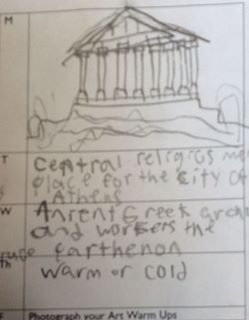 M
T
Central religios me
place for the city of
Athens
W
Anrent Greek arch
and workers the
earthenon
Th
warm or cold
F
Photograph your Art Warm Ups